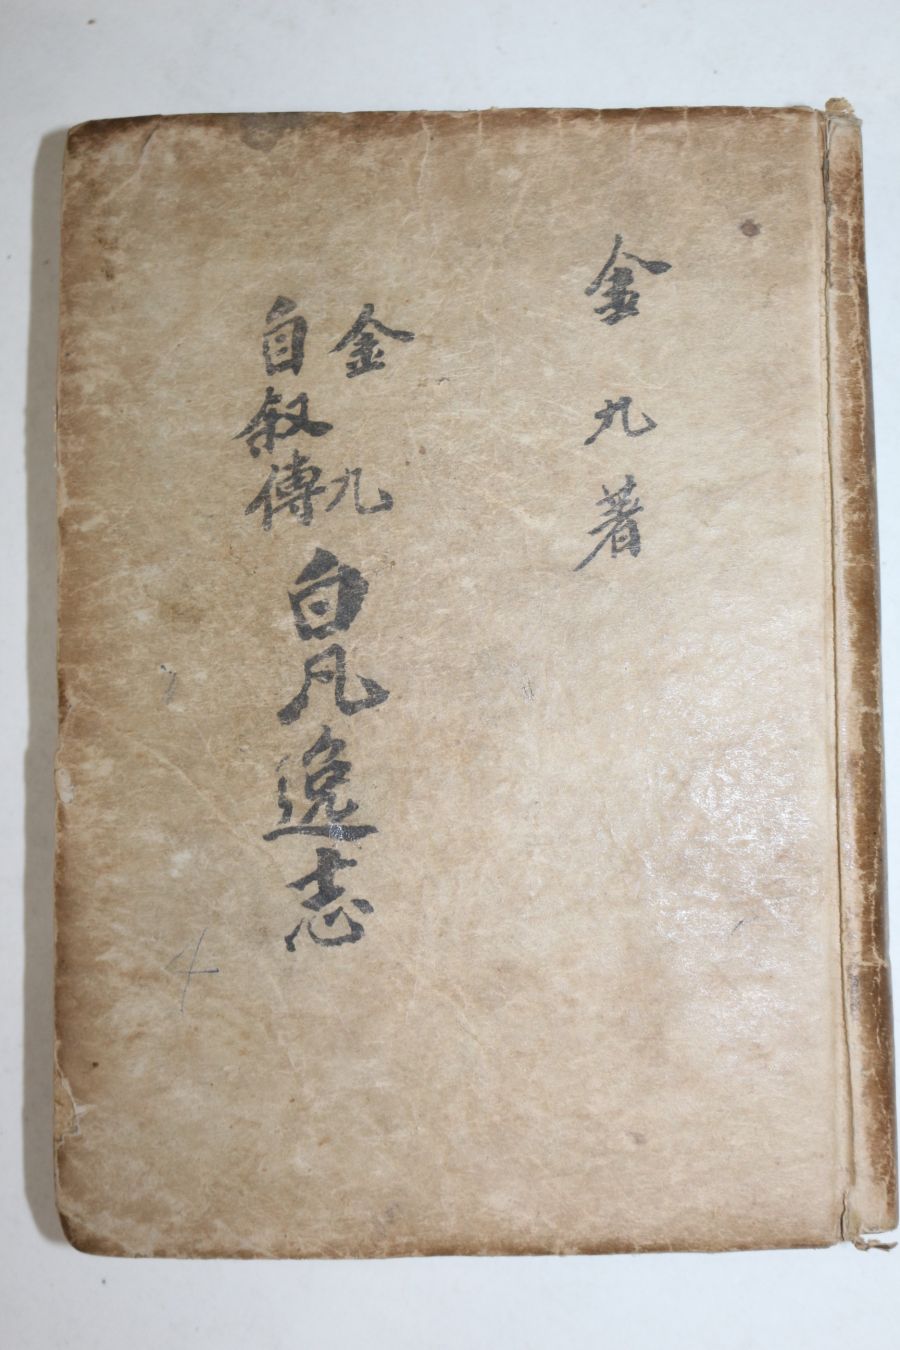 金九著
金九
自叙傳
白凡逸志
4